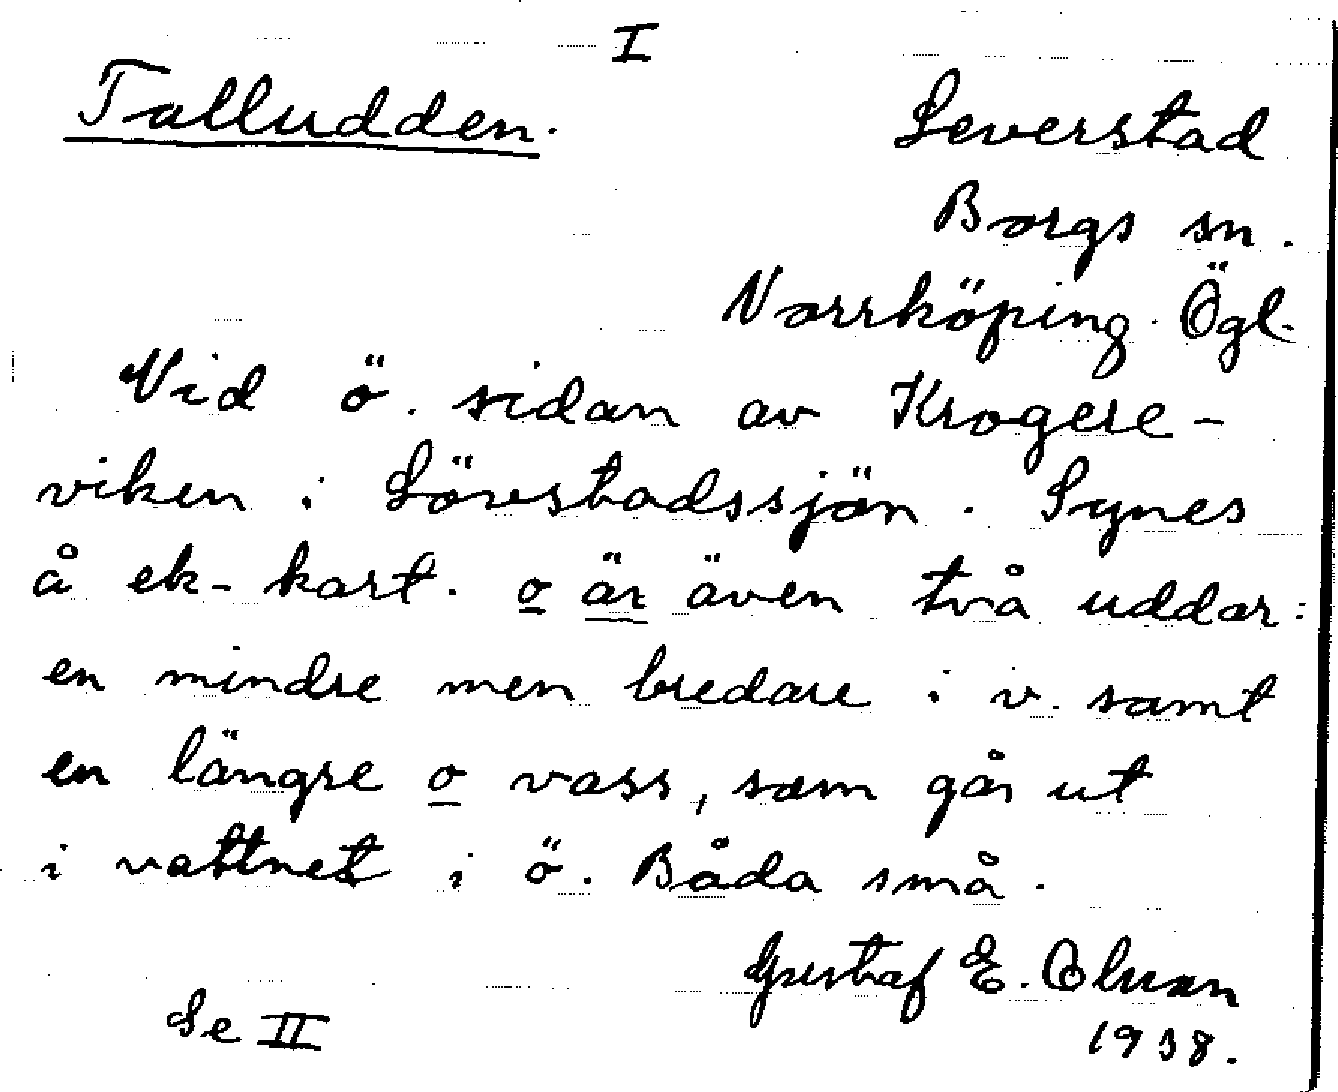 I
Talludden.
Leverstad
Borgs sn.
Norrköping. Ögl.
Vid ö. sidan av Krogere-
viken i Lövstadssjön. Synes
å ek-kart. o är även två uddar:
en mindre men bredare i v. samt
en längre o vass, som går ut
i vattnet i ö. Båda små.
Gustaf E. Olsson
1938.
Se II